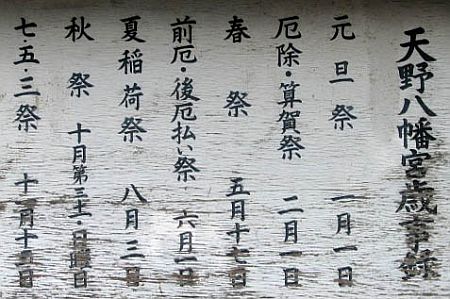 天野八幡宮歳事録
元旦祭 一月一日
厄除・算賀祭 二月一日
春祭 五月十七日
前厄・後厄払い祭 六月一日
夏稲荷祭 八月三日
秋祭 十月第三土・日曜日
七・五・三祭 十一月十五日